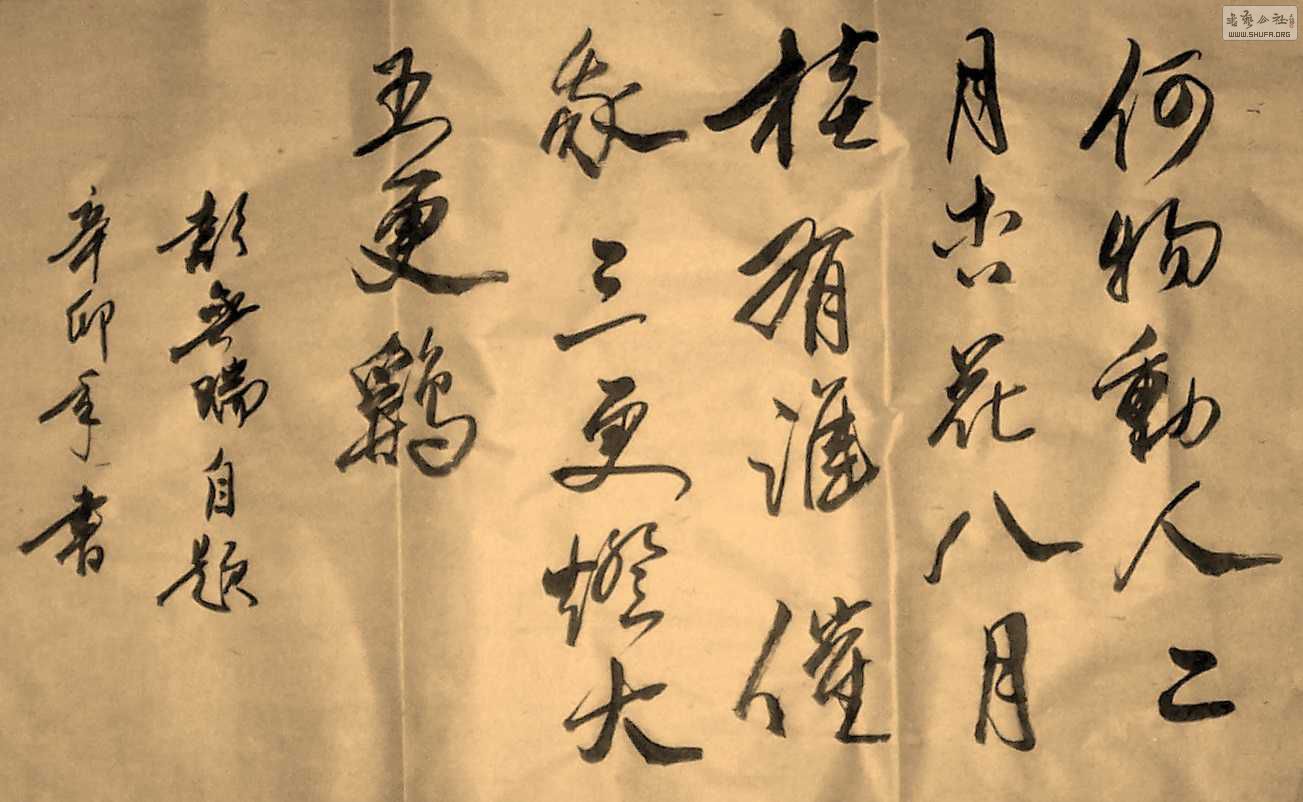 何物動人二
月杏花八月
桂有誰催
我三更燈火
五更鷄
彭無 自題
辛卯年書
書藝公社
WWW.SHUFA.ORG